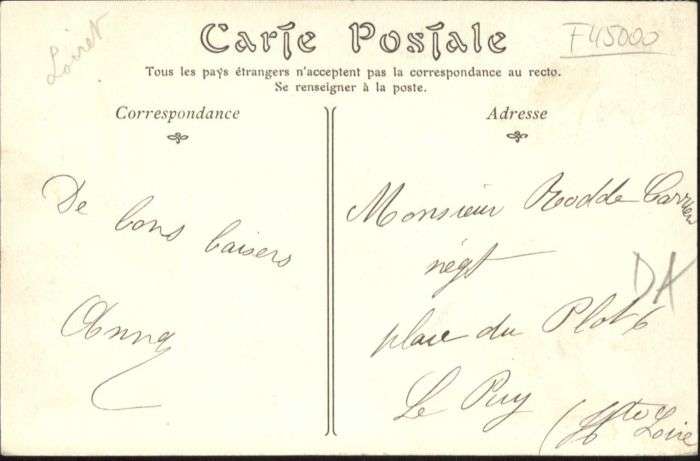 Loiret
F45000
Carte Postale
Tous les pays étrangers n'acceptent pas la correspondance au recto.
Se renseigner à la poste.
Correspondance
Adresse
De bons baisers
Anna
Monsieur Rodde Carrier
négt
place du Plot 6
Le Puy
(Hte Loire
DA